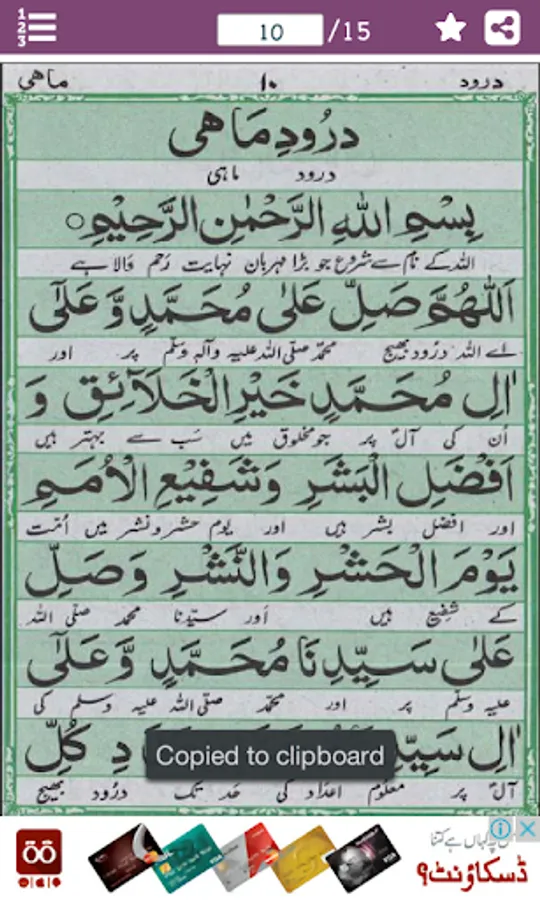 1
2
3
10 /15
درود ۱۰ ماهي
درُودِ مَاهی
درود ماہی
بِسْمِ اللهِ الرَّحْمٰنِ الرَّحِيْمِ ○
اللہ کے نام سے شروع جو بڑا مہربان نہایت رحم والا ہے
اَللّٰهُمَّ صَلِّ عَلٰى مُحَمَّدٍ وَّ عَلٰٓى
اے اللہ درُود بھیج محمّد صلّی اللہ علیہ وآلہٖ وسلّم پر اور
اٰلِ مُحَمَّدٍ خَيْرِ الْخَلَآئِقِ وَ
اُن کی آلؑ پر جو مخلوق میں سَب سے بہتر ہیں
اَفْضَلِ الْبَشَرِ وَشَفِيْعِ الْاُمَمِ
اور افضل بشر ہیں اور یوم حشر و نشر میں اُمّت
يَوْمَ الْحَشْرِ وَالنَّشْرِ وَصَلِّ
کے شفِیع ہیں اَور سیّدنا محمد صلّی اللہ
عَلٰى سَيِّدِنَا مُحَمَّدٍ وَّعَلٰٓى
علیہ وسلّم پر اور محمّد صلی اللہ علیہ وسلم کی
اٰلِ سَيِّدِ دِ كُلِّ
Copied to clipboard
آلؑ پر معلوم اعدَاد کی حَد تک درُود بھیج
پہ کہاں ہے کتنا
ڈسکاؤنٹ؟
VISA